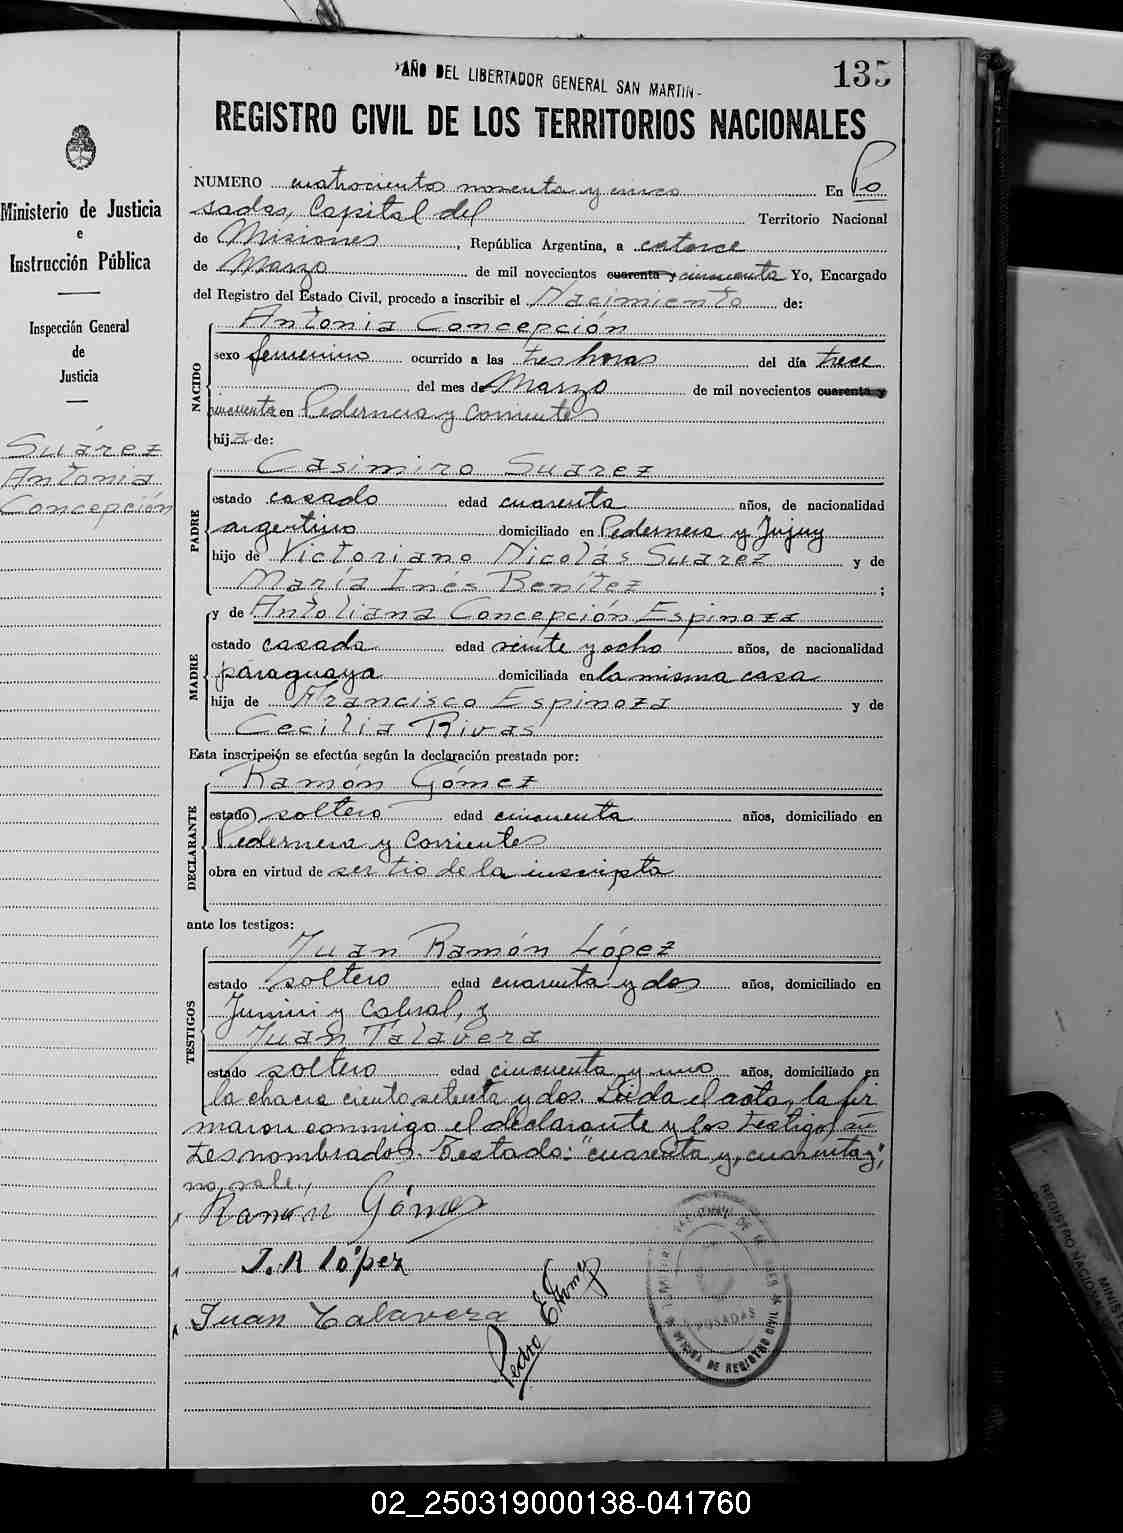 AÑO DEL LIBERTADOR GENERAL SAN MARTIN
135
REGISTRO CIVIL DE LOS TERRITORIOS NACIONALES
Ministerio de Justicia
e
Instrucción Pública
Inspección General
de
Justicia
Suárez
Antonia
Concepción
NUMERO cuatrocientos noventa y cinco En Po
sadas, Capital del Territorio Nacional
de Misiones, República Argentina, a catorce
de Marzo de mil novecientos cuarenta y cincuenta Yo, Encargado
del Registro del Estado Civil, procedo a inscribir el Nacimiento de:
NACIDO
Antonia Concepción
sexo femenino ocurrido a las tres horas del día trece
del mes de Marzo de mil novecientos cuarenta y
cincuenta en Pedernera y Corrientes
hija de:
PADRE
Casimiro Suarez
estado casado edad cuarenta años, de nacionalidad
argentino domiciliado en Pedernera y Jujuy
hijo de Victoriano Nicolás Suarez y de
María Inés Benítez;
MADRE
y de Antoliana Concepción Espinoza
estado casada edad veinte y ocho años, de nacionalidad
paraguaya domiciliada en la misma casa
hija de Francisco Espinoza y de
Cecilia Rivas
Esta inscripción se efectúa según la declaración prestada por:
DECLARANTE
Ramón Gómez
estado soltero edad cincuenta años, domiciliado en
Pedernera y Corrientes
obra en virtud de ser tio de la inscripta
ante los testigos:
TESTIGOS
Juan Ramón López
estado soltero edad cuarenta y dos años, domiciliado en
Junin y Cabral, y
Juan Talavera
estado soltero edad cincuenta y uno años, domiciliado en
la chacra ciento setenta y dos. Leida el acta, la fir
maron conmigo el declarante y los testigos an
tes nombrados. Testado: "cuarenta y, cuarenta y",
no vale.
Ramon Gómez
J. R López
Juan Talavera
Pedro E
POSADAS
OFICINA DE REGISTRO CIVIL
REGISTRO NACIONAL
02_250319000138-041760